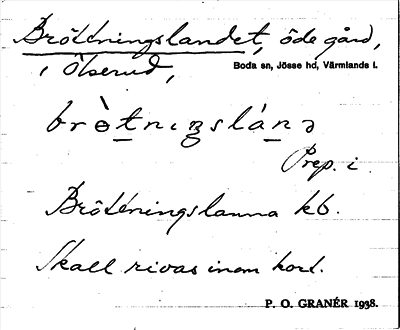 Brötningslandet, öde gård,
i Ölserud,
Boda sn, Jösse hd, Värmlands l.
brò̱tnɩŋslá̱nə
Prep. i
Brötningslanna kb.
Skall rivas inom kort.
P. O. GRANÉR 1938.